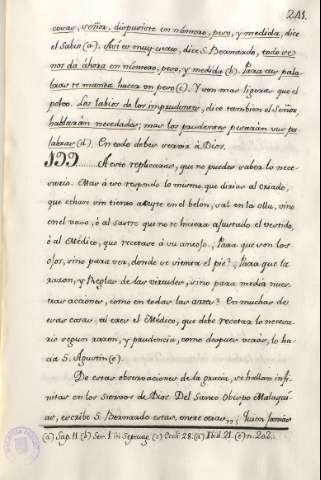 241.
cosas, señor, dispusiste en número, peso, y medida, dice
el Sabio (a). Así es muy cierto, dice S. Bernardo, todo se
nos dá ahora en número, peso, y medida (b). Para tus pala-
bras te manda hacer un peso (c). Y son mas ligeras que el
polvo. Los labios de los imprudentes, dice tambien el Señor,
hablarán necedades; mas los prudentes pesarán sus pa-
labras (d). En todo debes vencer à Dios.
199 A esto replicarás, que no puedes saber lo nece-
sario. Mas à eso respondo lo mismo, que dirias al criado,
que echase sin tiento aceyte en el belon, sal en la olla, vino
en el vaso, ó al sastre que no te hiciera ajustado el vestido,
ó al Médico, que recetase à su antojo. ¿Para que son los
ojos, sino para ver, donde se sienta el pie? ¿Para que la
razon, y Reglas de las virtudes, sino para medir nues-
tras acciones, como en todas las artes? En muchas de
esas cosas tú eres el Médico, que debe recetar lo necesa-
rio segun razon, y prudencia, como despues verás, lo ha-
cia S. Agustin (e).
De estas observaciones de la gracia, se hallan infi-
nitas en los Siervos de Dios. Del Santo Obispo Malaquí-
as, escribe S. Bernardo estas, entre otras,, ¿Quien jamás
(a) Sap. 11. (b) Ser. 1. in Septuag. (c) Eccli. 28. (d) Ibid. 21. (e) n. 202.